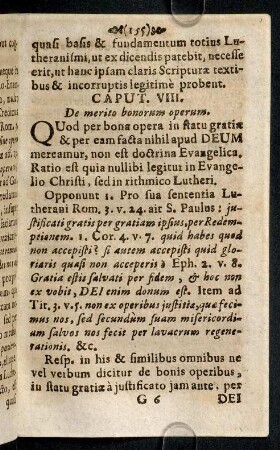 (155)
quasi basis & fundamentum totius Lu-
theranismi, ut ex dicendis patebit, necesse
erit, ut hanc ipsam claris Scripturæ texti-
bus & incorruptis legitimè probent.
CAPUT. VIII.
De merito bonorum operum.
QUod per bona opera in statu gratiæ
& per eam facta nihil apud DEUM
mereamur, non est doctrina Evangelica.
Ratio est quia nullibi legitur in Evange-
lio Christi, sed in rithmico Lutheri.
Opponunt 1. Pro sua sententia Lu-
therani Rom. 3. v. 24. ait S. Paulus: ju-
stificati gratis per gratiam ipsius, per Redem-
ptionem. 1. Cor. 4. v. 7. quid habes quod
non accepisti? si autem accepisti quid glo-
riaris quasi non acceperis? Eph. 2. v. 8.
Gratia estis salvati per fidem, & hoc non
ex vobis, DEI enim donum est. Item ad
Tit. 3. v. 5. non ex operibus justitiæ, quæ feci-
mus nos, sed secundùm suam misericordi-
am salvos nos fecit per lavacrum regene-
rationis. &c.
Resp. in his & similibus omnibus ne
vel verbum dicitur de bonis operibus,
in statu gratiæ à justificato jam ante, per
G 6 DEI